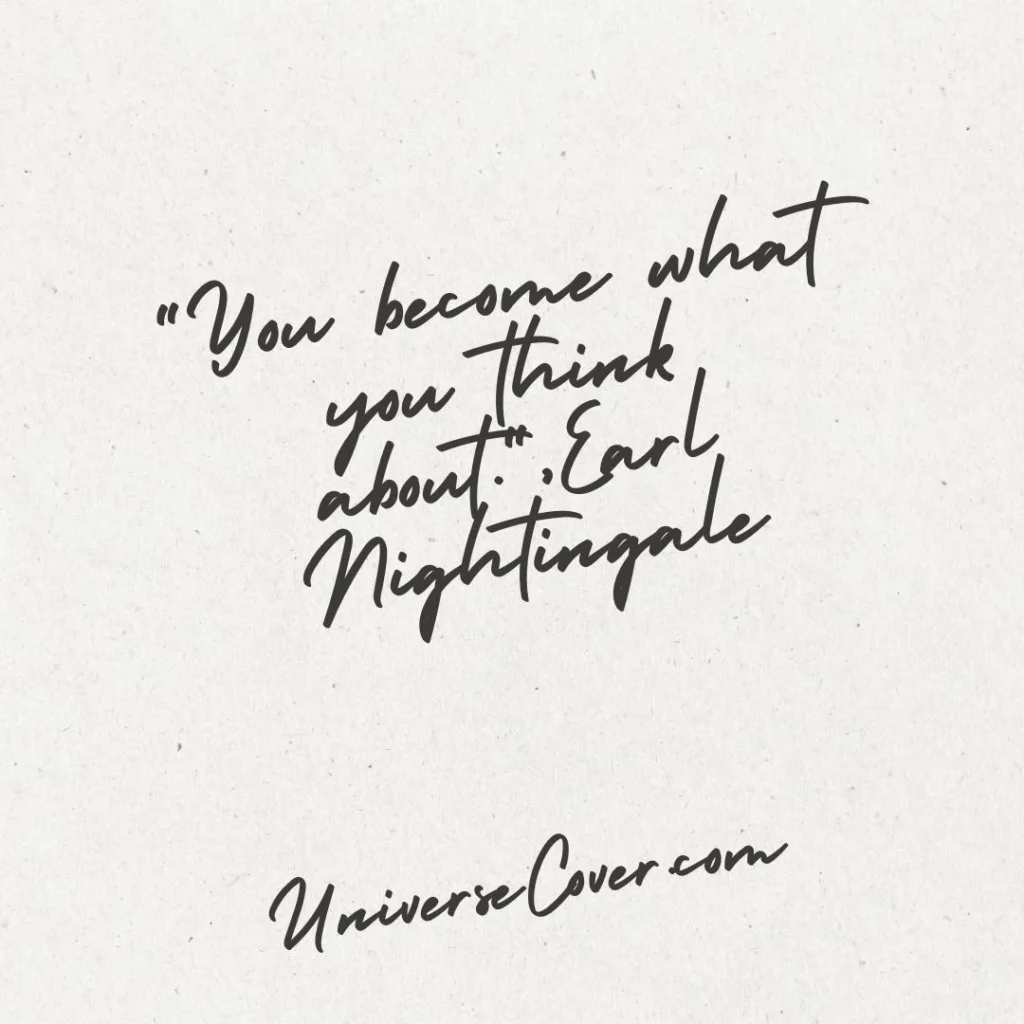 "You become what
you think
about." ,Earl
Nightingale
UniverseCover.com